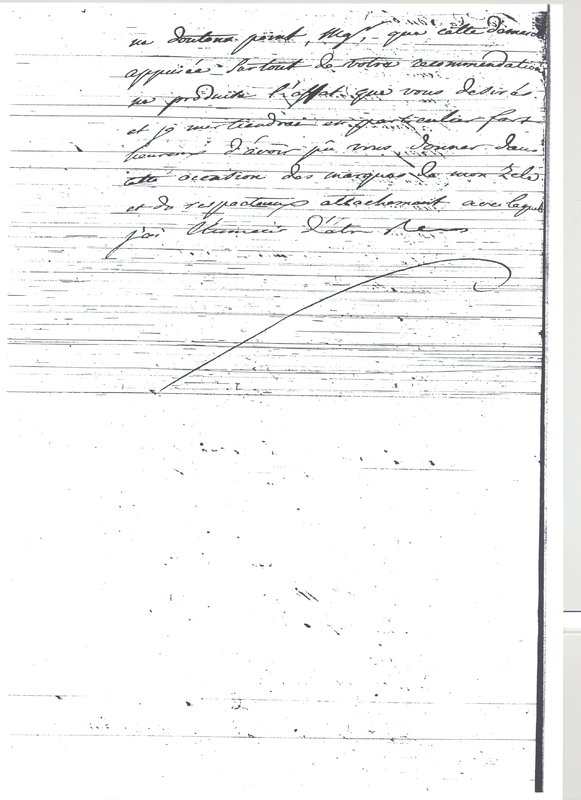 ne doutons point, Mgr. que cette demarc
appuiée Surtout de votre recommendation
ne produise l'effet que vous desirés
et je me tiendrai en particulier fort
heureux d'avoir pû vous donner dans
cette occation des marques de mon Zele
et du respectueux attachement avec lequel
j'ai l'honneur d'être